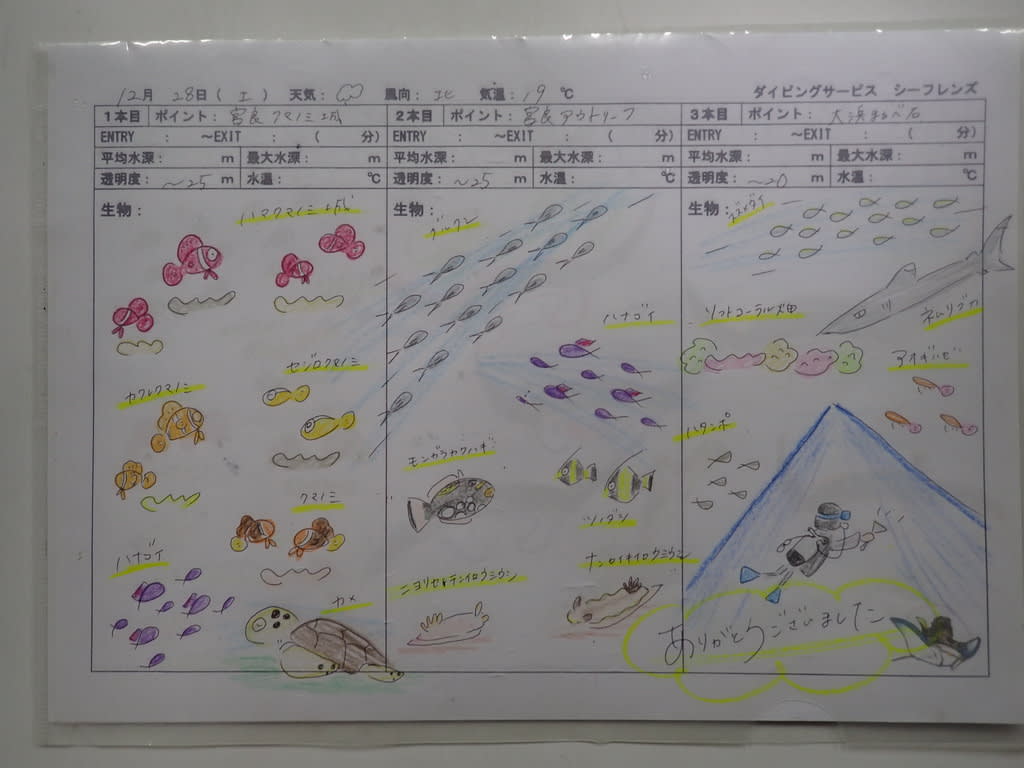 12月 28日(土) 天気: 風向:北 気温:19℃ ダイビングサービス シーフレンズ
1本目 ポイント:宮良クマノミ城
ENTRY : ～EXIT : ( 分)
平均水深: m 最大水深: m
透明度:～25 m 水温: ℃
生物:
ハマクマノミ城
カクレクマノミ
セジロクマノミ
クマノミ
ハナゴイ
カメ
2本目 ポイント:宮良アウトリーフ
ENTRY : ～EXIT : ( 分)
平均水深: m 最大水深: m
透明度:～25 m 水温: ℃
生物:
グルクン
ハナゴイ
モンガラカワハギ
ツノダシ
ニヨリセトイロウミウシ
3本目 ポイント:大浜
ENTRY : ～EXIT : ( 分)
平均水深: m 最大水深: m
透明度:～20 m 水温: ℃
生物:
ソフトコーラル畑
ネムリブカ
ハタンポ
ありがとうございました